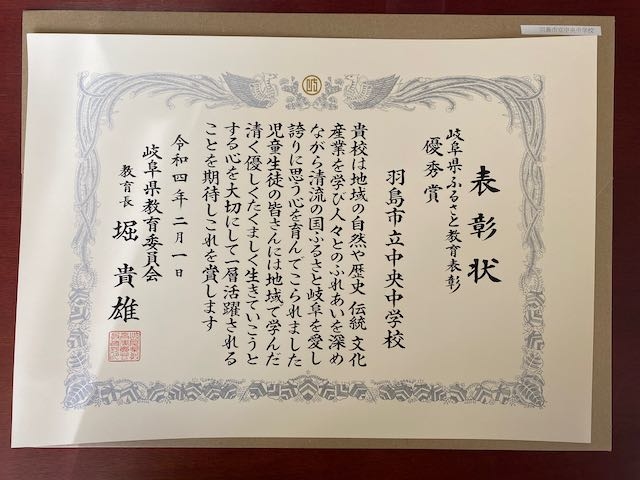 羽島市立中央中学校
表彰状
岐阜県ふるさと教育表彰
優秀賞
羽島市立中央中学校
貴校は地域の自然や歴史 伝統 文化
産業を学び人々とのふれあいを深め
ながら清流の国ふるさと岐阜を愛し
誇りに思う心を育んでこられました
児童生徒の皆さんには地域で学んだ
清く優しくたくましく生きていこうと
する心を大切にして一層活躍される
ことを期待しこれを賞します
令和四年二月一日
岐阜県教育委員会
教育長 堀 貴雄